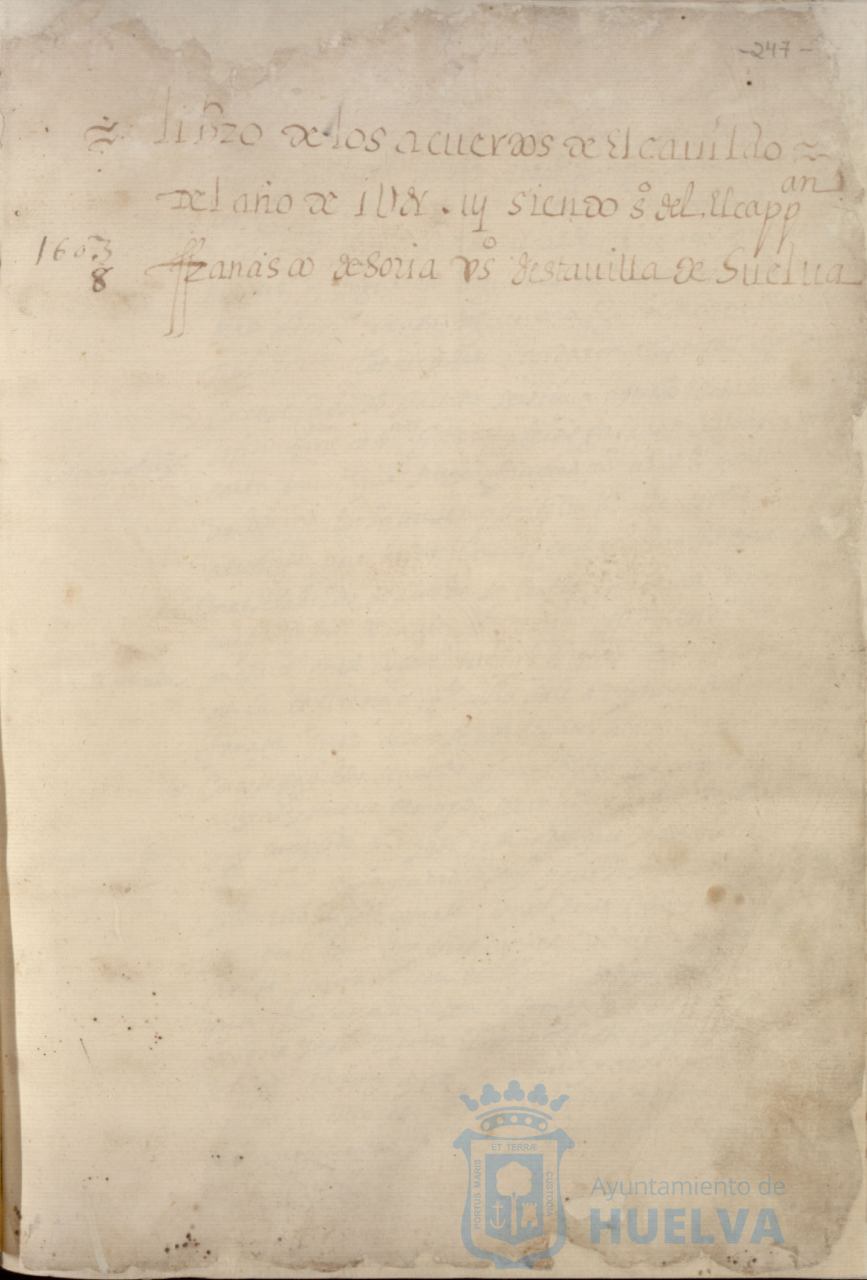 -247-
libro de los acuerdos de El cauildo
del año de siendo sº del El capp an
1603
8
ffrancisco de Soria vsº destauilla de Huelua
ET TERRÆ
PORTUS MARIS
CUSTODIA
Ayuntamiento de
HUELVA